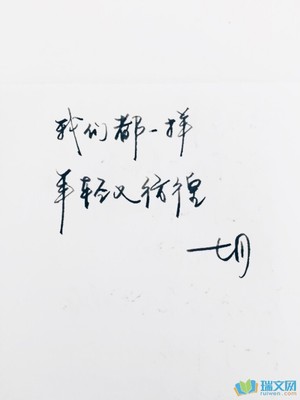 我们都一样
年轻又彷徨
七月
瑞文网
ruiwen.com